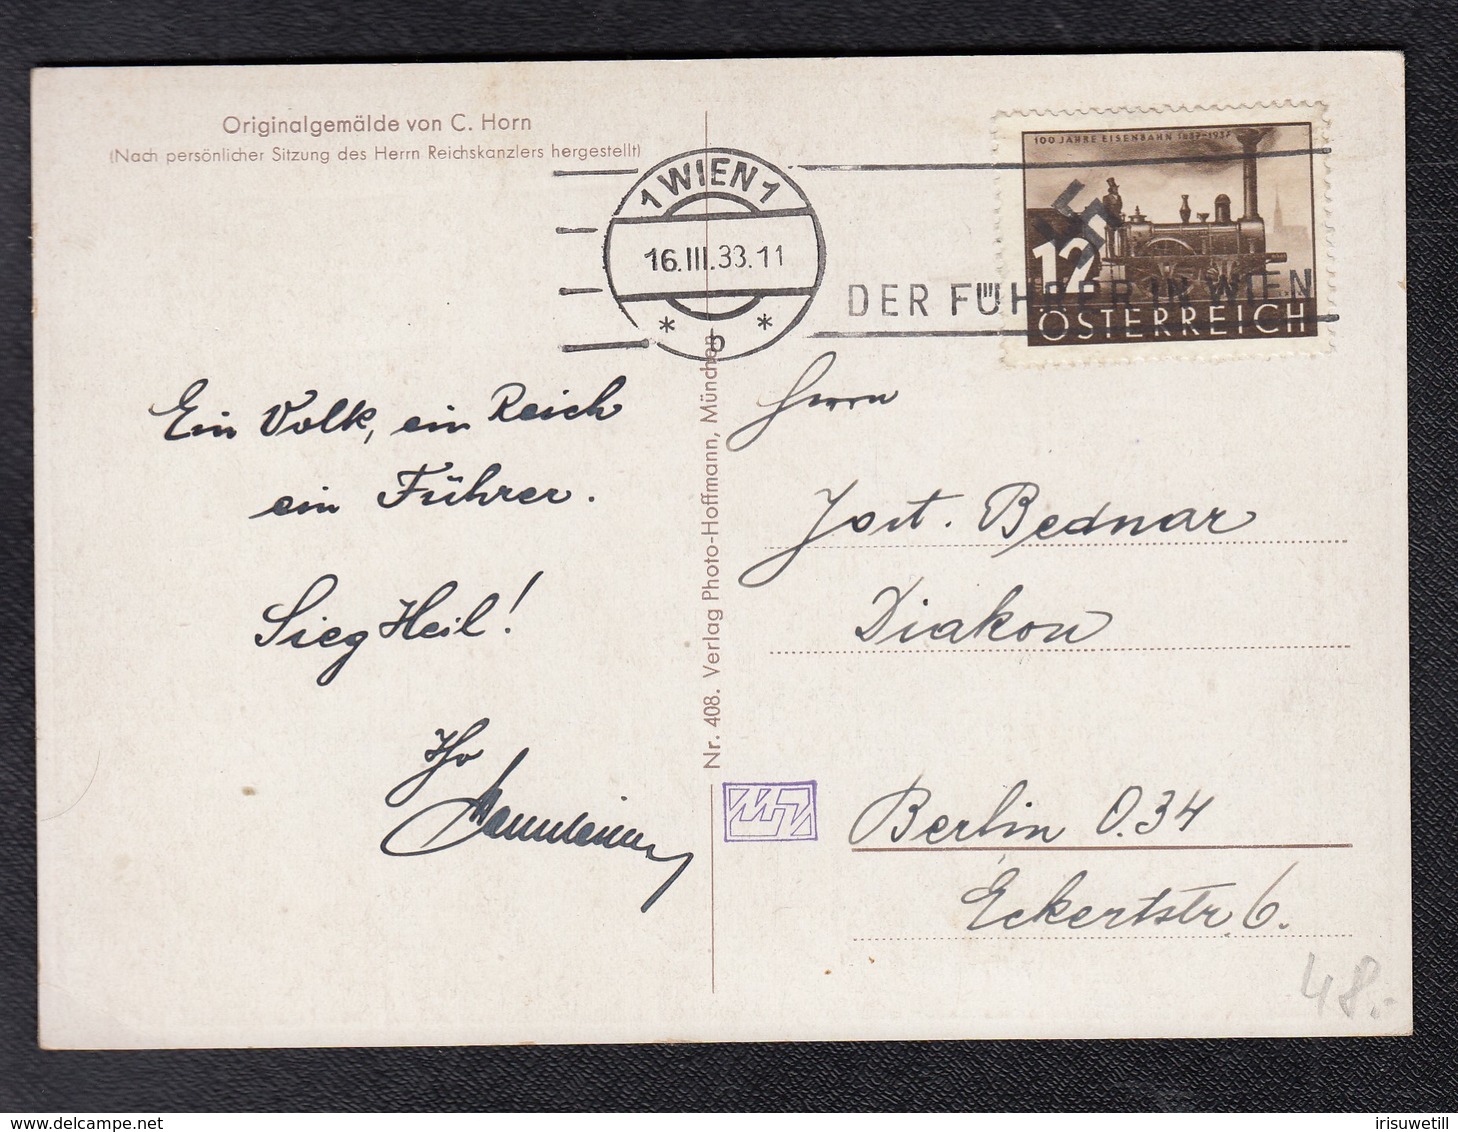 Originalgemälde von C. Horn
(Nach persönlicher Sitzung des Herrn Reichskanzlers hergestellt)
1 WIEN 1
16.III.38.11
* b *
DER FÜHRER IN WIEN
100 JAHRE EISENBAHN 1837-1937
12
ÖSTERREICH
Ein Volk, ein Reich
ein Führer.
Sieg Heil!
Ihr
Nr. 408. Verlag Photo-Hoffmann, München
Herrn
Jost. Bednar
Diakon
Berlin O.34
Eckertstr. 6.
48.-
irisuwetill